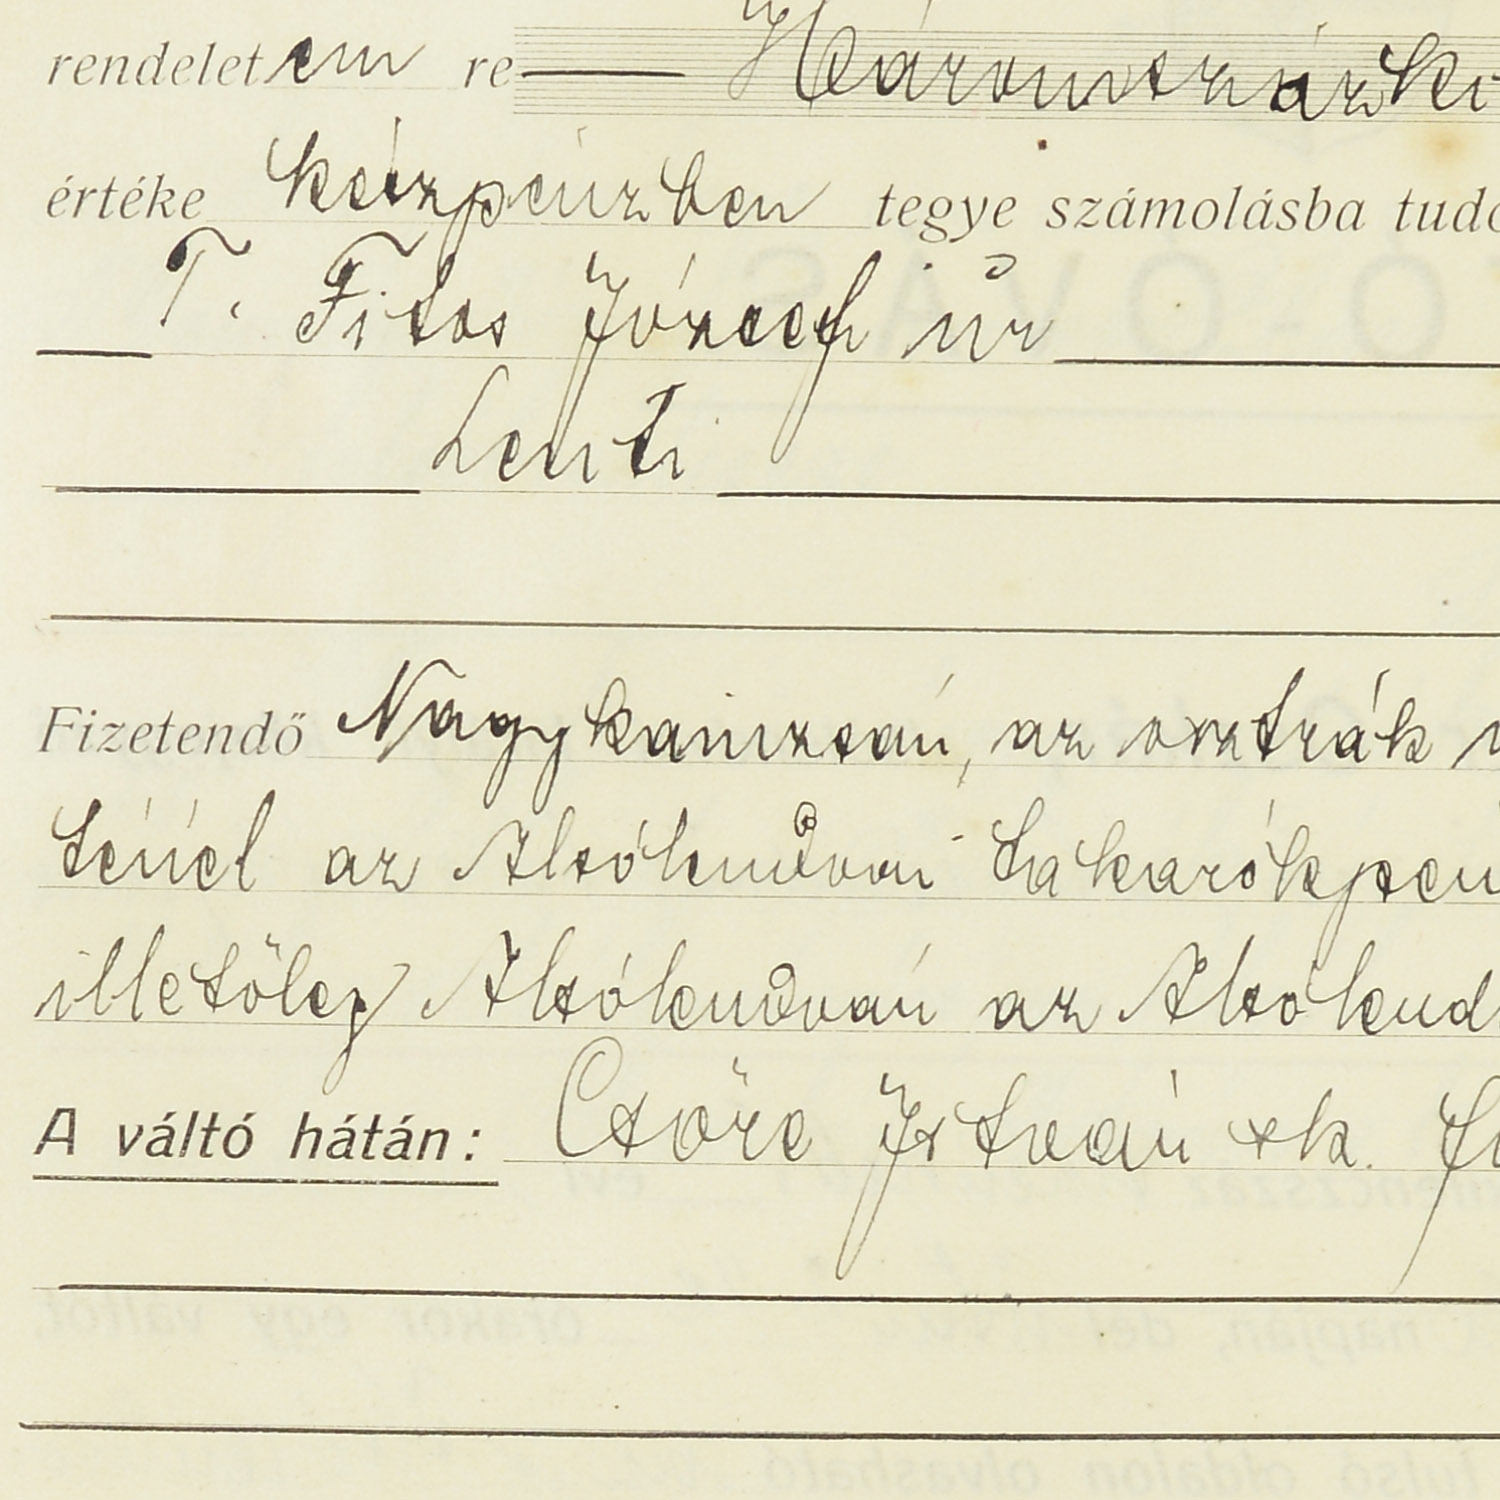 rendeletem re Háromszázki
értéke készpénzben tegye számolásba tudó
T. Fitos József úr
Lenti
Fizetendő Nagykanizsán, az osztrák
ténél az Alsólendvai takarékpén
illetőleg Alsólendván az Alsólend
A váltó hátán: Csőre István sk.